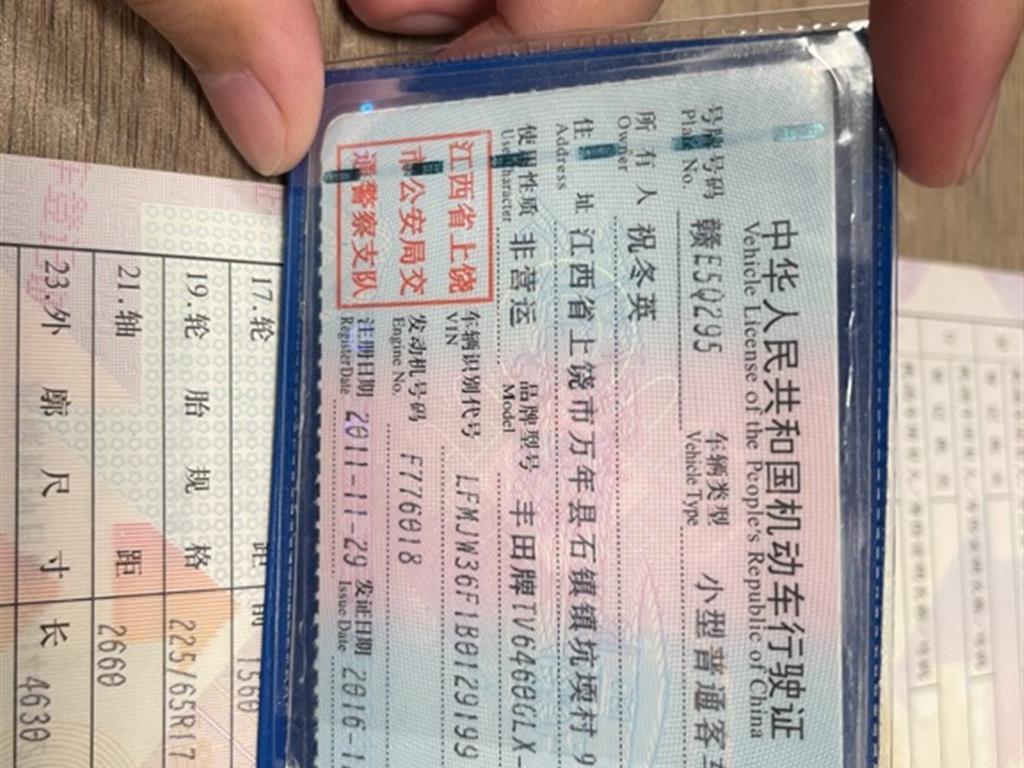 中华人民共和国机动车行驶证
Vehicle License of the People's Republic of China
号牌号码 赣E5Q295 车辆类型 小型普通客车
Plate No. Vehicle Type
所有人 祝冬英
Owner
住址 江西省上饶市万年县石镇镇坑堧村9
Address
使用性质 非营运 品牌型号 丰田牌TV6460GLX-
Use Character Model
江西省上饶
市公安局交
通警察支队
车辆识别代号 LFMJW36F1B0129199
VIN
发动机号码 F776018
Engine No.
注册日期 2011-11-29 发证日期 2016-1
Register Date Issue Date
17.轮 距 前 1560
19.轮胎规格 225/65R17
21.轴 距 2660
23.外廓尺寸 长 4630